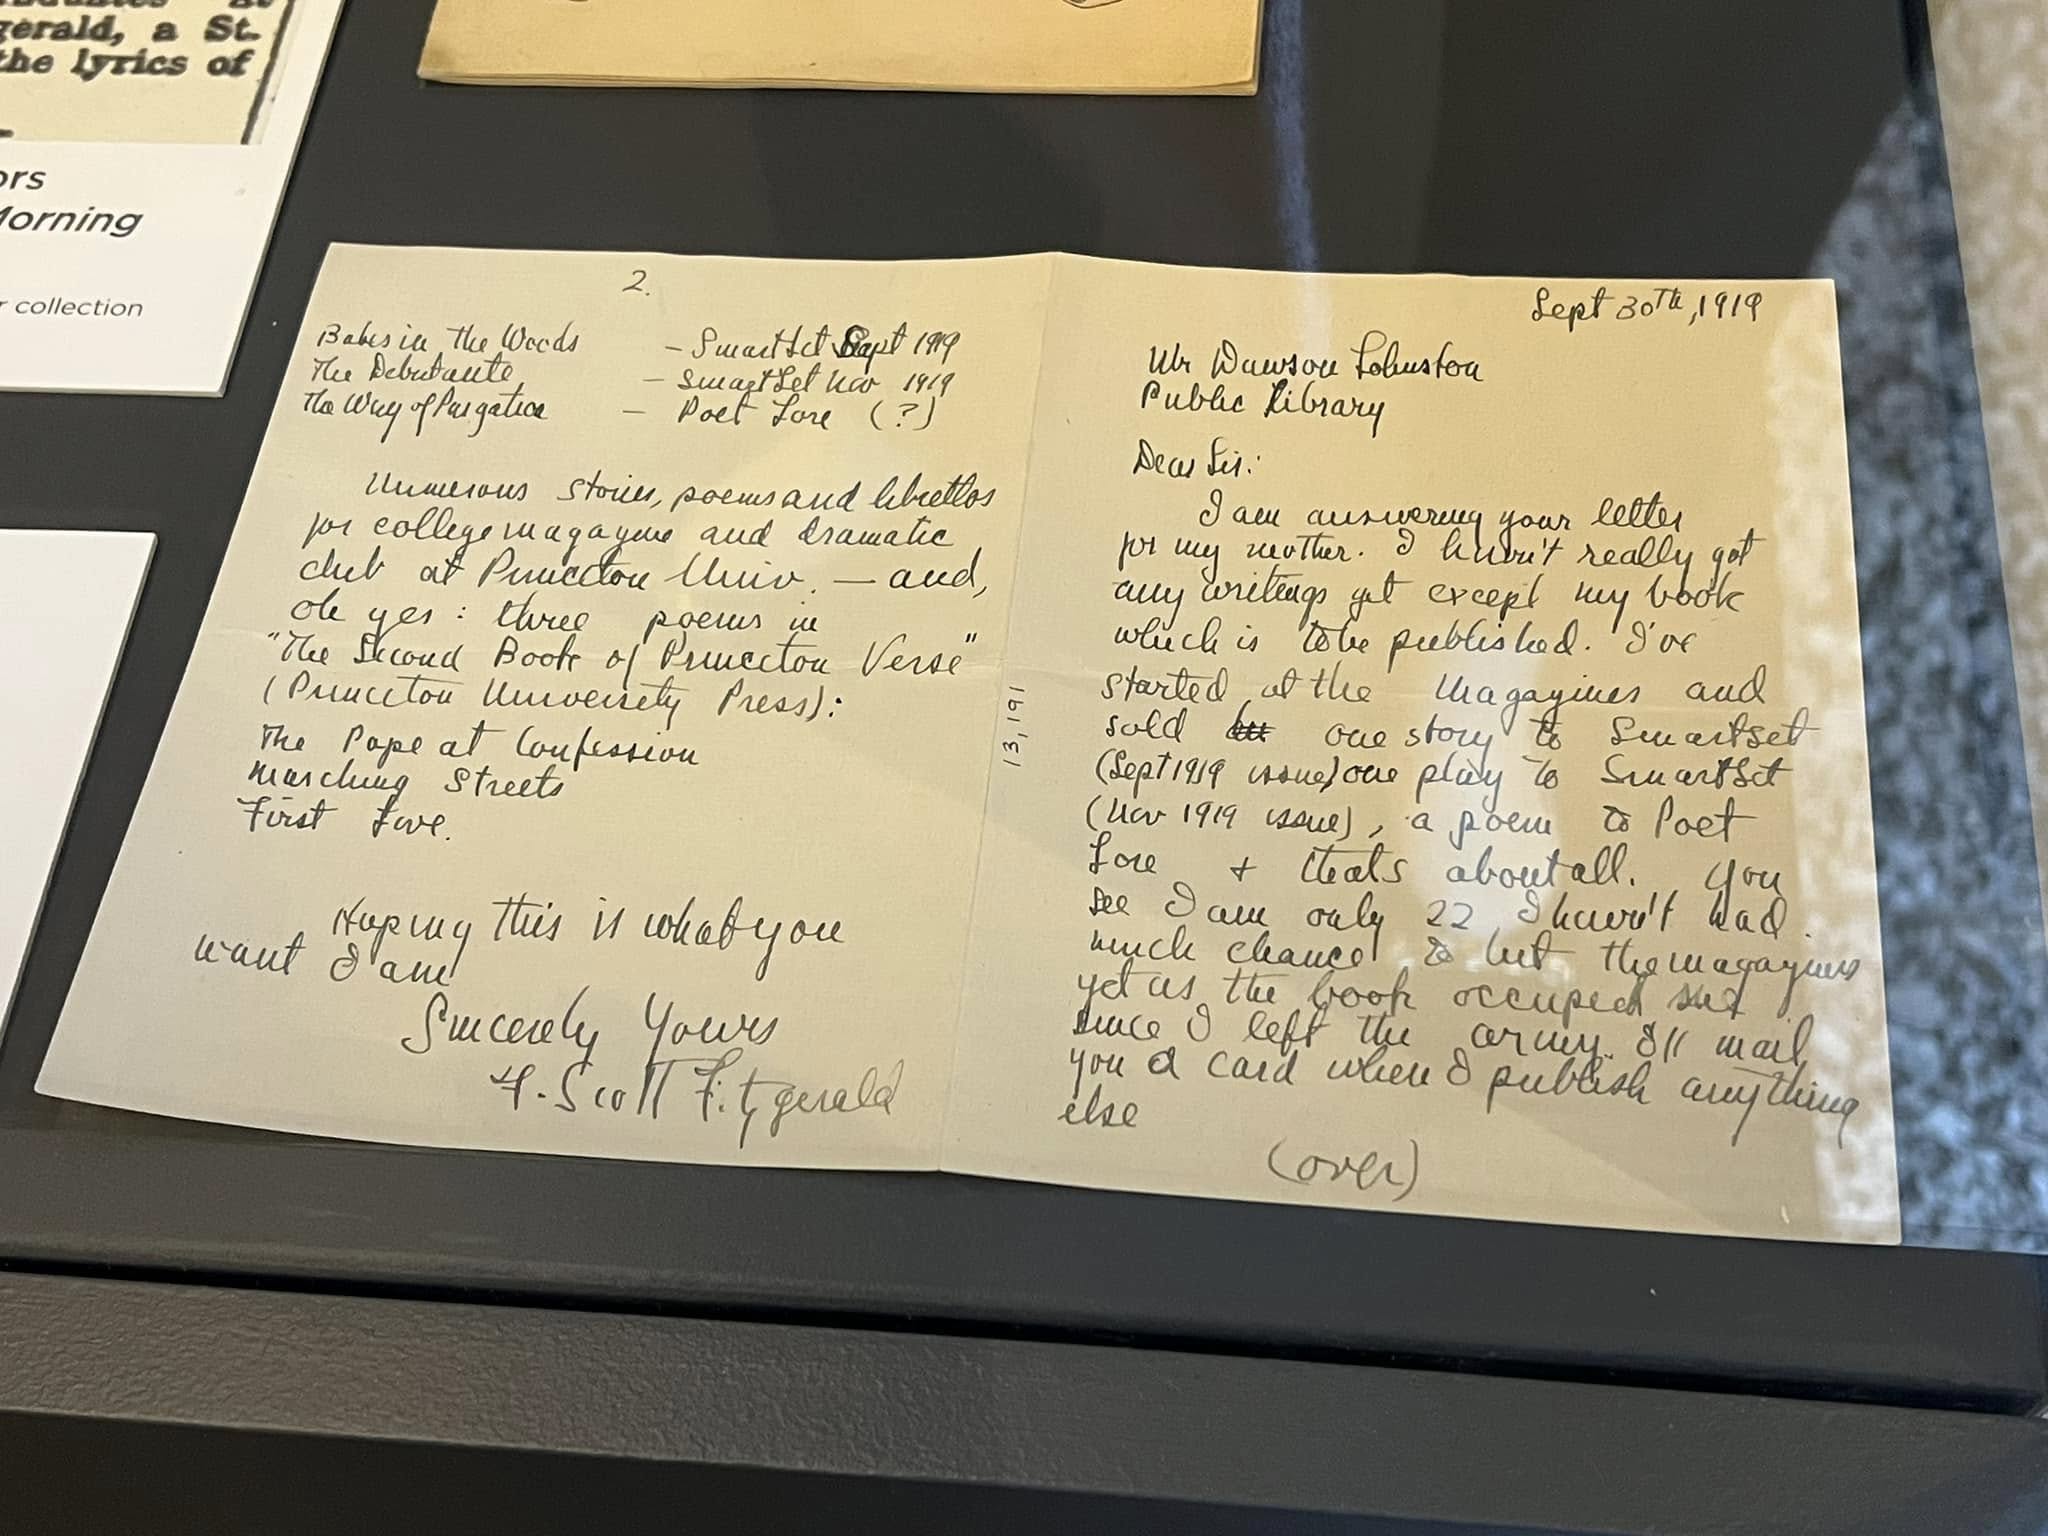 gerald, a St.
the lyrics of
ors
Morning
r collection
Sept 30th, 1919
Mr Dawson Johnston
Public Library
Dear Sir:
I am answering your letter
for my mother. I haven't really got
any writings yet except my book
which is to be published. I've
started at the magazines and
sold one story to Smart Set
(Sept 1919 issue) one play to Smart Set
(Nov 1919 issue), a poem to Poet
Lore + thats about all. You
see I am only 22 I haven't had
much chance to hit the magazines
yet as the book occupied me
since I left the army. I'll mail
you a card when I publish anything
else
(over)
13,191
2.
Babes in the Woods — Smart Set Sept 1919
The Debutante — Smart Set Nov 1919
The Way of Purgation — Poet Lore (?)
Numerous stories, poems and librettos
for college magazine and dramatic
club at Princeton Univ. — and,
oh yes: three poems in
"The Second Book of Princeton Verse"
(Princeton University Press):
The Pope at Confession
Marching Streets
First Love.
Hoping this is what you
want I am
Sincerely Yours
F. Scott Fitzgerald